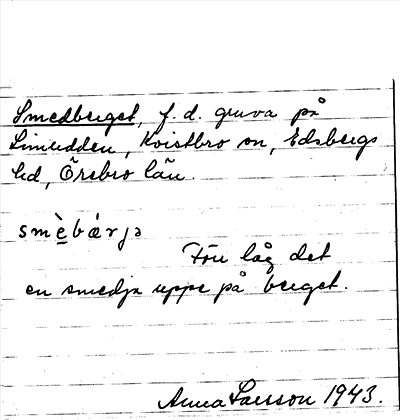 Smedberget, f. d. gruva på
Limudden, Kvistbro sn, Edsbergs
hd, Örebro län.
smèbárjə
Förr låg det
en smedja uppe på berget.
Anna Larsson 1943.